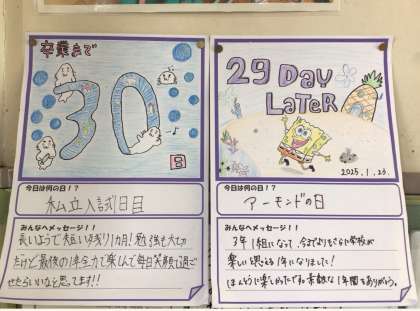 卒業まで
30
日
今日は何の日！？
私立入試日目
みんなへメッセージ！！
長いようで短い残り1カ月！勉強も大切
だけど最後の1年全力で楽しんで毎日笑顔で過ご
せたらいいなと思ってます!!
29 Day
Later
2025.1.23.
今日は何の日！？
アーモンドの日
みんなへメッセージ！！
3年1組になって、今までよりもさらに学校が
楽しいと思える1年になりました！
ほんとうに楽しかったです。素敵な1年間をありがとう。